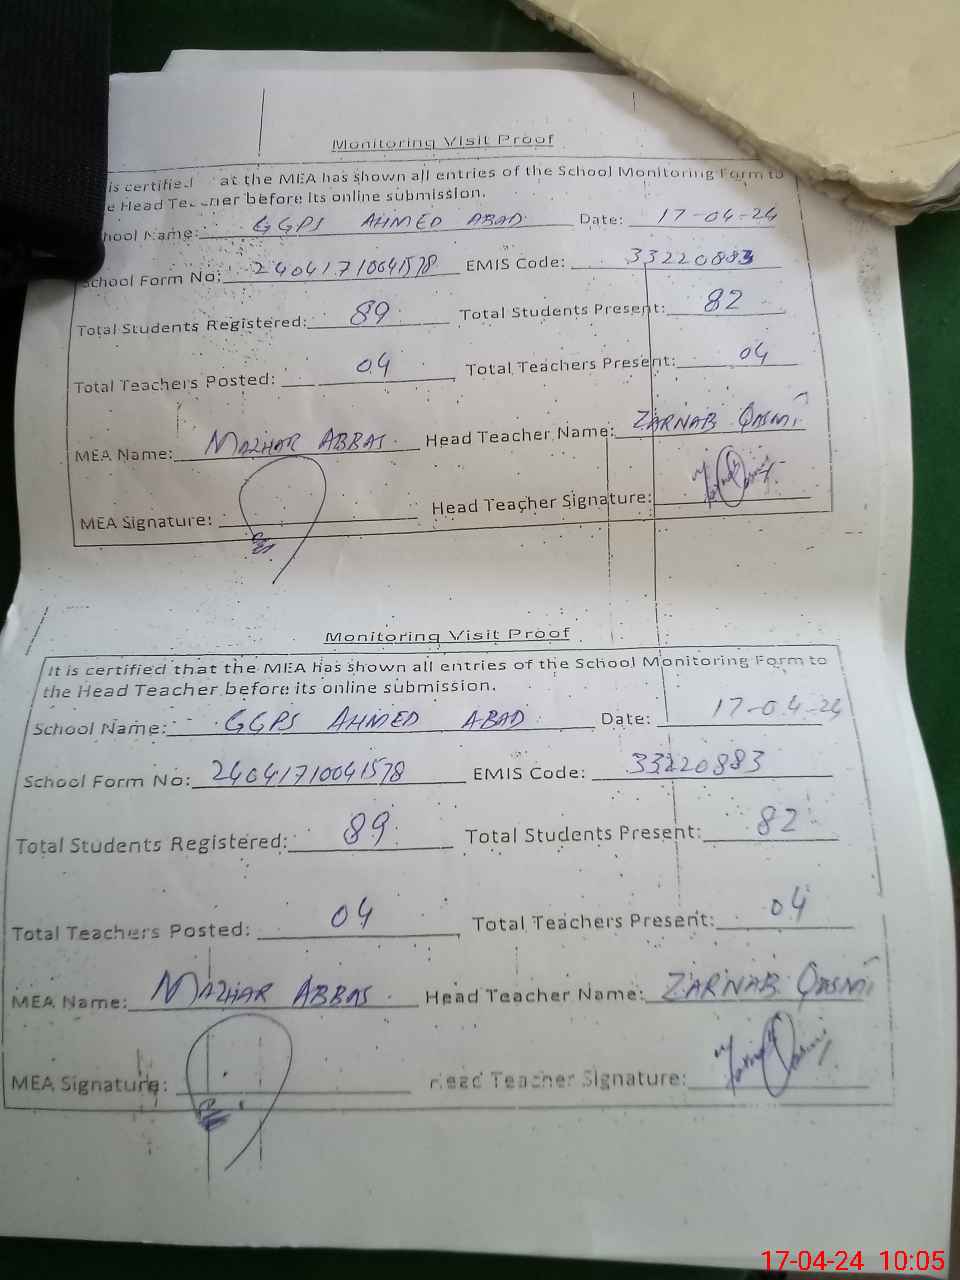 Monitoring Visit Proof
is certified at the MEA has shown all entries of the School Monitoring Form to
e Head Teacher before its online submission.
hool Name: GGPS AHMED ABAD Date: 17-04-24
School Form No: 24041710041578 EMIS Code: 33220883
Total Students Registered: 89 Total Students Present: 82
Total Teachers Posted: 04 Total Teachers Present: 04
MEA Name: MAZHAR ABBAS. Head Teacher Name: ZARNAB QASMI
MEA Signature: Head Teacher Signature:
Monitoring Visit Proof
It is certified that the MEA has shown all entries of the School Monitoring Form to
the Head Teacher before its online submission.
School Name: GGPS AHMED ABAD Date: 17-04-24
School Form No: 24041710041578 EMIS Code: 33220883
Total Students Registered: 89 Total Students Present: 82
Total Teachers Posted: 04 Total Teachers Present: 04
MEA Name: MAZHAR ABBAS. Head Teacher Name: ZARNAB QASMI
MEA Signature: Head Teacher Signature:
17-04-24 10:05